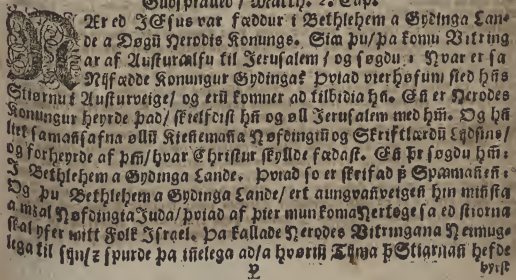 Gudspialled / Matth. 2. Cap.
NAr ed JEsus var fæddur i Bethlehem a Gydinga Lan-
de a Døgū Herodis Konungs. Sia þu/ þa komu Vitring
ar af Austuraalfu til Jerusalem / og søgdu: Hvar er sa
Nyfædde Konungur Gydinga? Þviad vier høfum sied hn̄s
Stiørnu i Austurveige/ og erū komner ad tilbidia hn̄. En̄ er Herodes
Konungur heyrde það/ skielfdist hn̄ og øll Jerusalem med hm̄. Og hn̄
liet saman̄safna øllū Kien̄emān̄a Høfdingiū og Skriftlærdū Lydsins/
og forheyrde af þm̄/ hvar Christur skyllde fædast. En̄ þr søgdu hm̄:
J Bethlehem a Gydinga Lande. Þviad so er skrifad þ Spaman̄en̄:
Og þu Bethlehem a Gydinga Lande/ ert aungvan̄veigen̄ hin min̄sta
a mʒal Høfdingia Juda/ þviad af þier mun koma Hertoge sa ed stiorna
skal yfer mitt Folk Jsrael. Þa kallade Herodes Vitringana heimug-
lega til sijn/ ꝛ spurde þa in̄elega ad/ a hvoriū Tijma þ Stiarnan̄ hefde
byrst